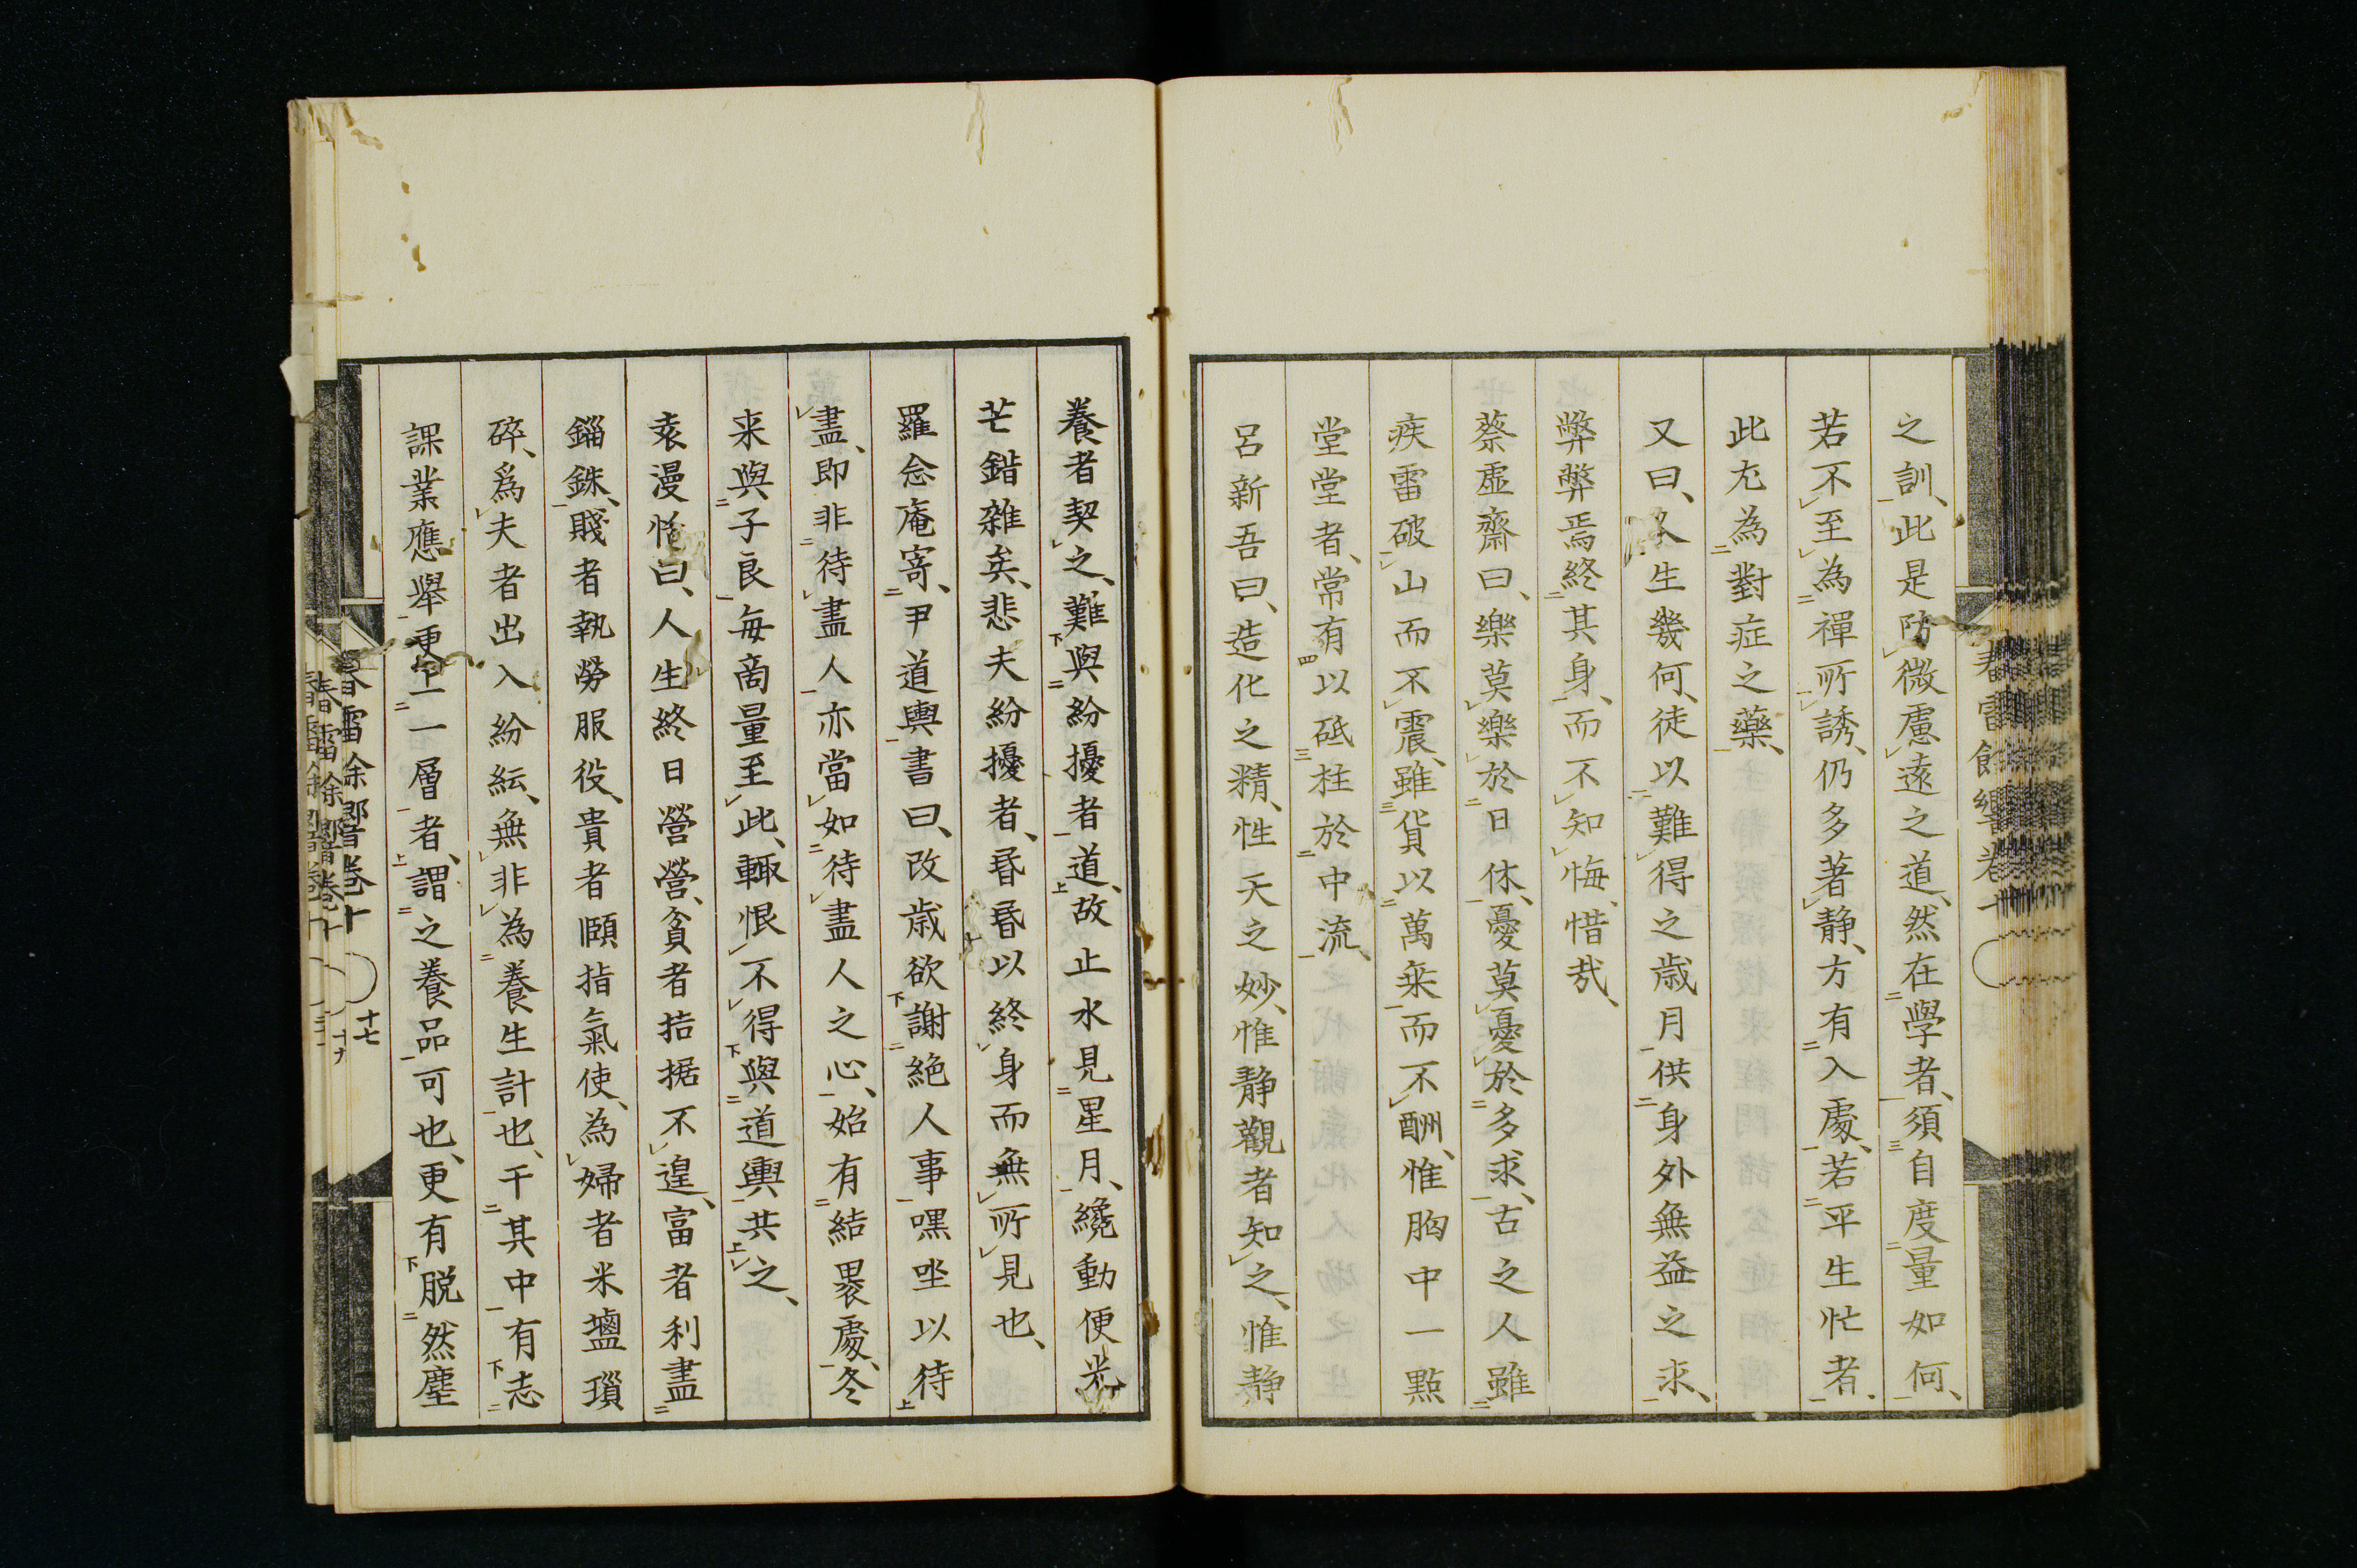 之訓、此是防微慮遠之道、然在學者、須自度量如何、
若不至為禪所誘、仍多著静、方有入處、若平生忙者、
此尤為對症之藥、
又曰、人生幾何、徒以難得之歳月供身外無益之求、
弊弊焉終其身、而不知悔、惜哉、
蔡虛齋曰、樂莫樂於日休、憂莫憂於多求、古之人雖
疾雷破山而不震、雖貨以萬乗而不酬、惟胸中一點
堂堂者、常有以砥柱於中流、
呂新吾曰、造化之精、性天之妙、惟静觀者知之、惟静
養者契之、難與紛擾者道、故止水見星月、纔動便光
芒錯雜矣、悲夫紛擾者、昬昬以終身而無所見也、
羅念庵寄尹道輿書曰、改歳欲謝絶人事嘿坐以待
盡、即非待盡人亦當如待盡人之心、始有結褁處、冬
来與子良毎商量至此、輒恨不得與道輿共之、
袁漫恬曰、人生終日營營、貪者拮据不遑、富者利盡
錙銖、賤者執勞服役、貴者頤指氣使、為婦者米鹽瑣
碎、爲夫者出入紛紜、無非為養生計也、于其中有志
課業應舉更上一層者、謂之養品可也、更有脱然塵
春雷餘響卷十
十七
十九